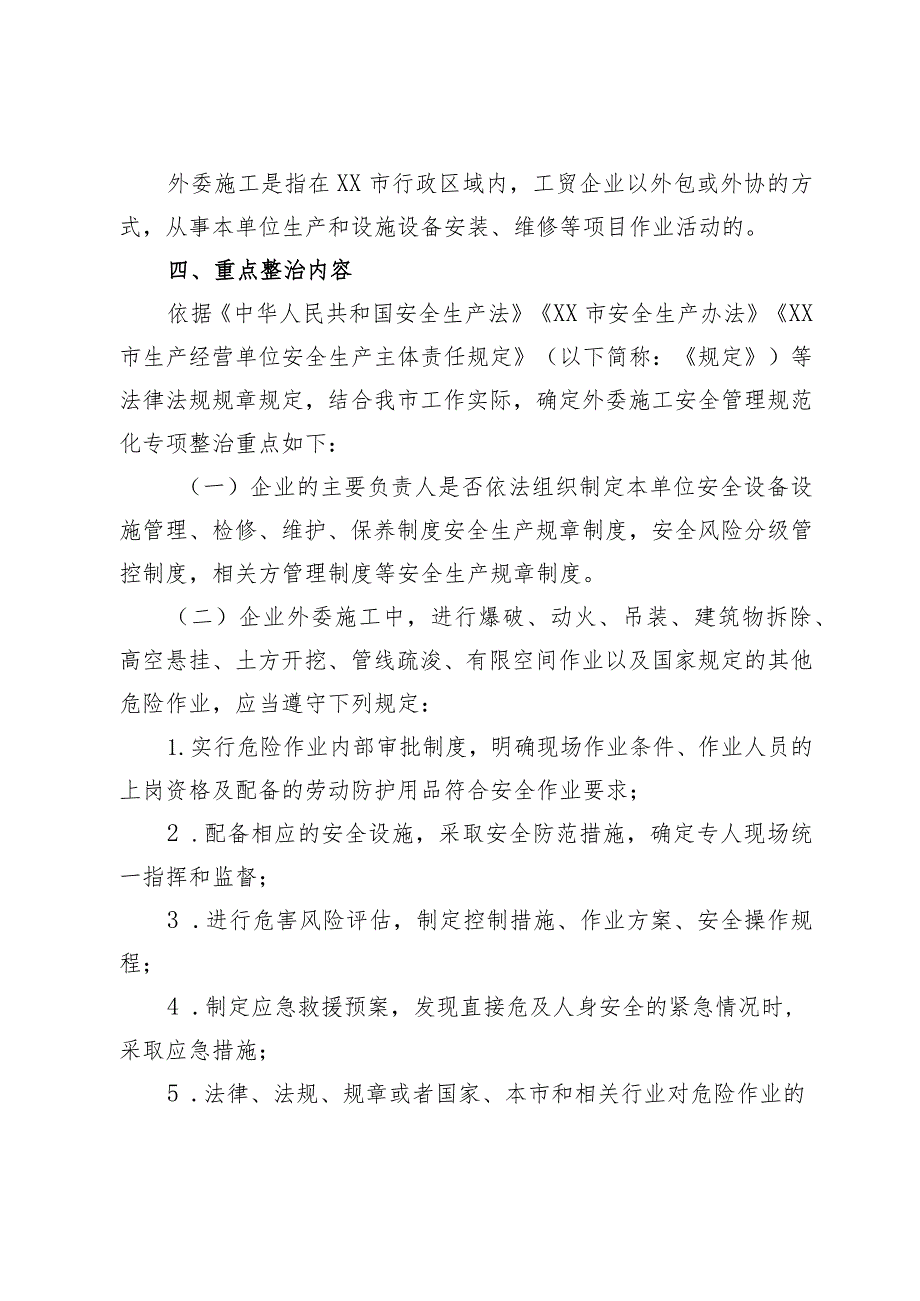 外委施工是指在XX市行政区域内，工贸企业以外包或外协的方
式，从事本单位生产和设施设备安装、维修等项目作业活动的。
四、重点整治内容
依据《中华人民共和国安全生产法》《XX市安全生产办法》《XX
市生产经营单位安全生产主体责任规定》（以下简称：《规定》）等
法律法规规章规定，结合我市工作实际，确定外委施工安全管理规范
化专项整治重点如下：
（一）企业的主要负责人是否依法组织制定本单位安全设备设
施管理、检修、维护、保养制度安全生产规章制度，安全风险分级管
控制度，相关方管理制度等安全生产规章制度。
（二）企业外委施工中，进行爆破、动火、吊装、建筑物拆除、
高空悬挂、土方开挖、管线疏浚、有限空间作业以及国家规定的其他
危险作业，应当遵守下列规定：
1.实行危险作业内部审批制度，明确现场作业条件、作业人员的
上岗资格及配备的劳动防护用品符合安全作业要求；
2 .配备相应的安全设施，采取安全防范措施，确定专人现场统
一指挥和监督；
3 .进行危害风险评估，制定控制措施、作业方案、安全操作规
程；
4 .制定应急救援预案，发现直接危及人身安全的紧急情况时，
采取应急措施；
5 .法律、法规、规章或者国家、本市和相关行业对危险作业的